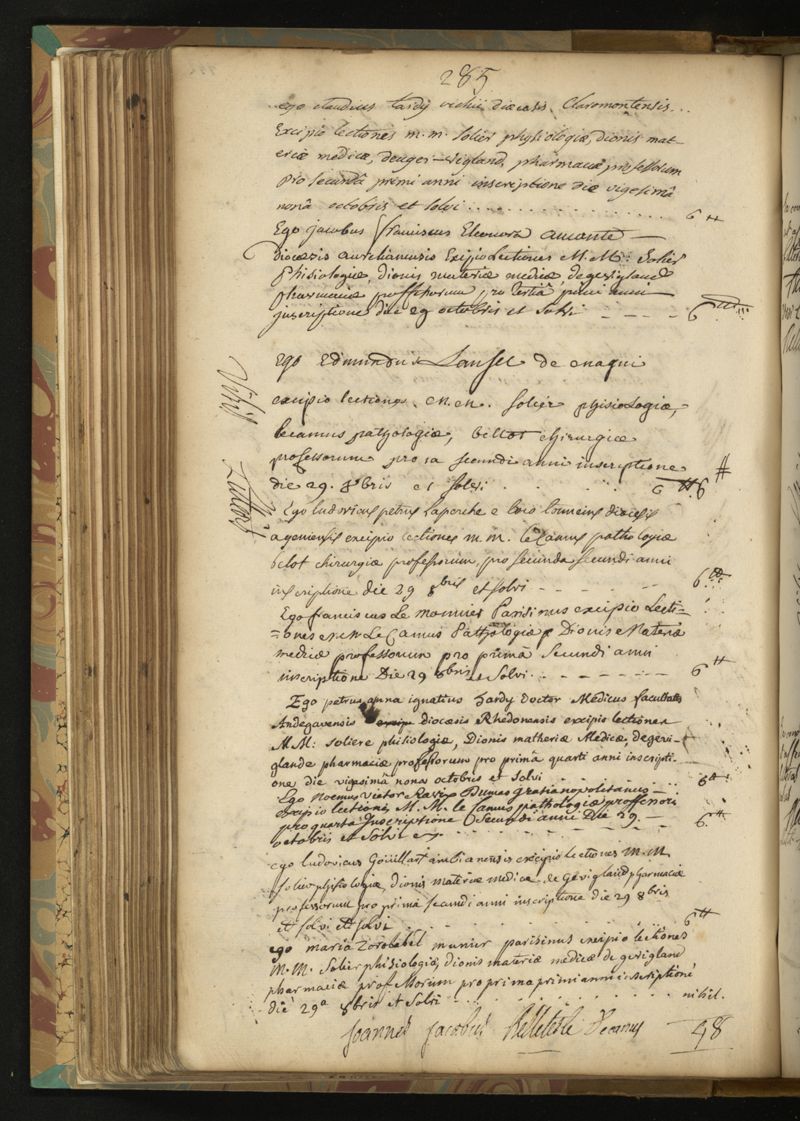 285
ego claudius tardy vichii diœcesis Claromontensis..
Excipio lectiones m. m. Solier physiologiæ, dionis mat-
eriæ medicæ, degevigland, pharmaciæ professorum
pro secundâ primi anni inscriptione die vigesimâ
nonâ octobris et solvi .................. 6 ₶
Ego jacobus franciscus Eleonora amante —
Diocæsis aurelianensis Exipio Lectiones M. M: Solier
Phisiologiæ, dionis materiæ medicæ, degevigland
pharmaciæ professorum pro tertiâ primi anni
inscriptione die 29 octobris et solvi — — — — 6₶
Ego Edmundus Lansel de enaqui
Nihil
excipio lectiones. m. m. solier phisiologiæ,
lecamus pathologiæ, bellot chirurgiæ
professorum pro 1a secundi anni inscriptione
die 29. 8bris et solvi . . . . 6 ₶ 6 ₶
Ego ludovicus petrus laperche e diœcesis
ageniensis excipio lectiones m. m. le Camus pathologiæ
belot chirurgiæ professorum, pro secunda secundi anni
inscriptione die 29 8bris et solvi — — — — — 6₶
Ego franciscus Le monnier Parisinus excipio Lecti=
=ones m.m Le Camus Pathologiæ Dionis Materiæ
medicæ professorum pro primâ Secundi anni
inscriptione Die 29 8bris et Solvi — — — — — 6₶
Ego petrus anna ignatius hardy Doctor Medicus facultatis
Andegavensis diocœsis Rhedonensis excipio lectiones
M.M: soliere phisiologiæ, Dionis matheriæ Medicæ, degevi-
glande pharmaciæ professorum pro primâ quarti anni inscripti-
one die vigesimâ nona octobris et solvi . . . . . 6₶
Ego Noemus Victor Dumas gratianopolitanus —
excipio lectiones M. M. le Camus pathologiæ professoris
pro quarta Inscriptione Secundi anni Die 29 —
octobris et solvi . . . . . . . 6.₶
ego ludovicus Goüillart ambianensis excipio lectiones M. M
solier phisiologiæ, dionis materiæ medicæ de Gevigland pharmaciæ
professorum pro primâ secundi anni inscriptione die 29 8bris
et solvi et solvi . . . . . . . 6 ₶
ego maria Zorobabel munier parisinus excipio lectiones
M. M. Solier phisiologiæ, dionis materiæ medicæ de gevigland
pharmaciæ professorum pro prima primi anni inscriptione
die 29a 8bris et Solvi . . . . . . . nihil.
Joannes Jacobus Belleteste Decanus 48